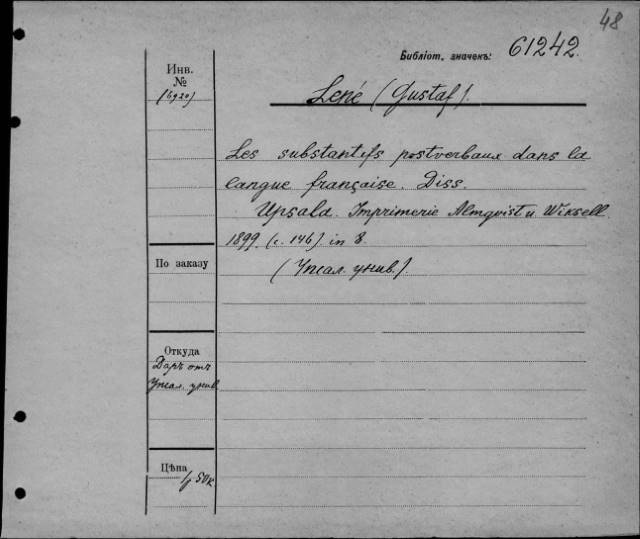 48
Библіот. значекъ: 61242.
Инв.
№
(6920)
Lené (Gustaf).
Les substantifs postverbaux dans la
langue française. Diss.
Upsala. Imprimerie Almqvist u. Wiksell.
1899. (c. 146) in 8.
(Упсал. унив.).
По заказу
Откуда
Даръ отъ
Упсал. унив.
Цѣна
50к